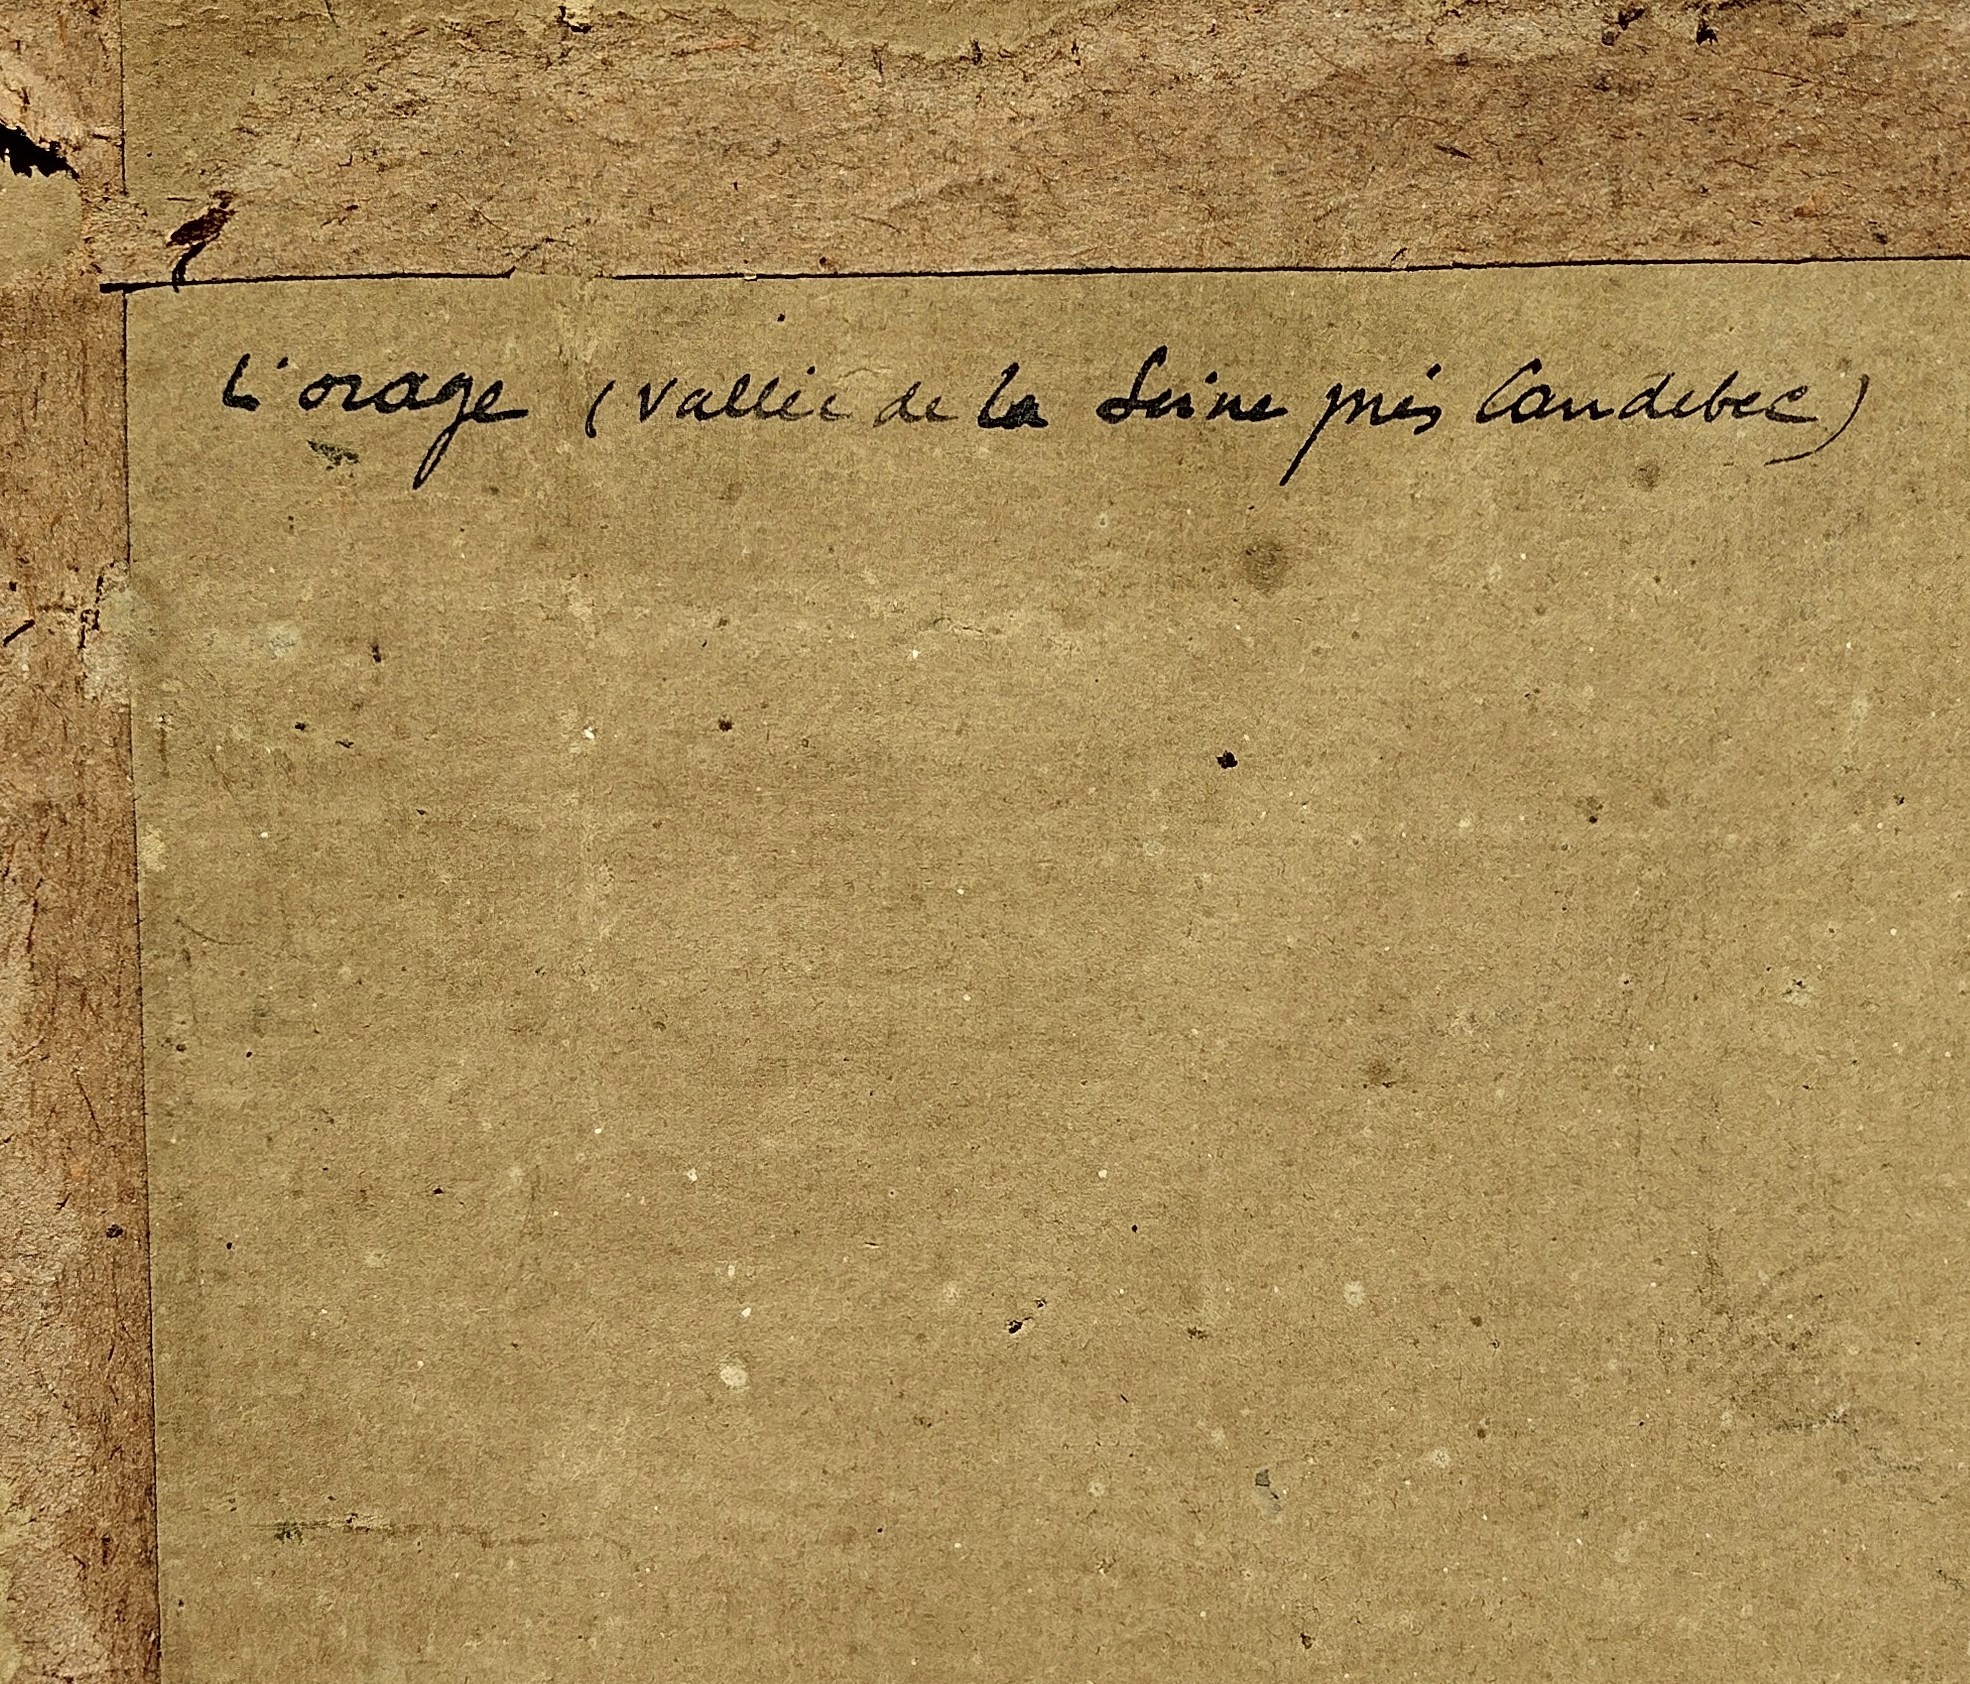 L'orage (Vallée de la Seine près Caudebec)